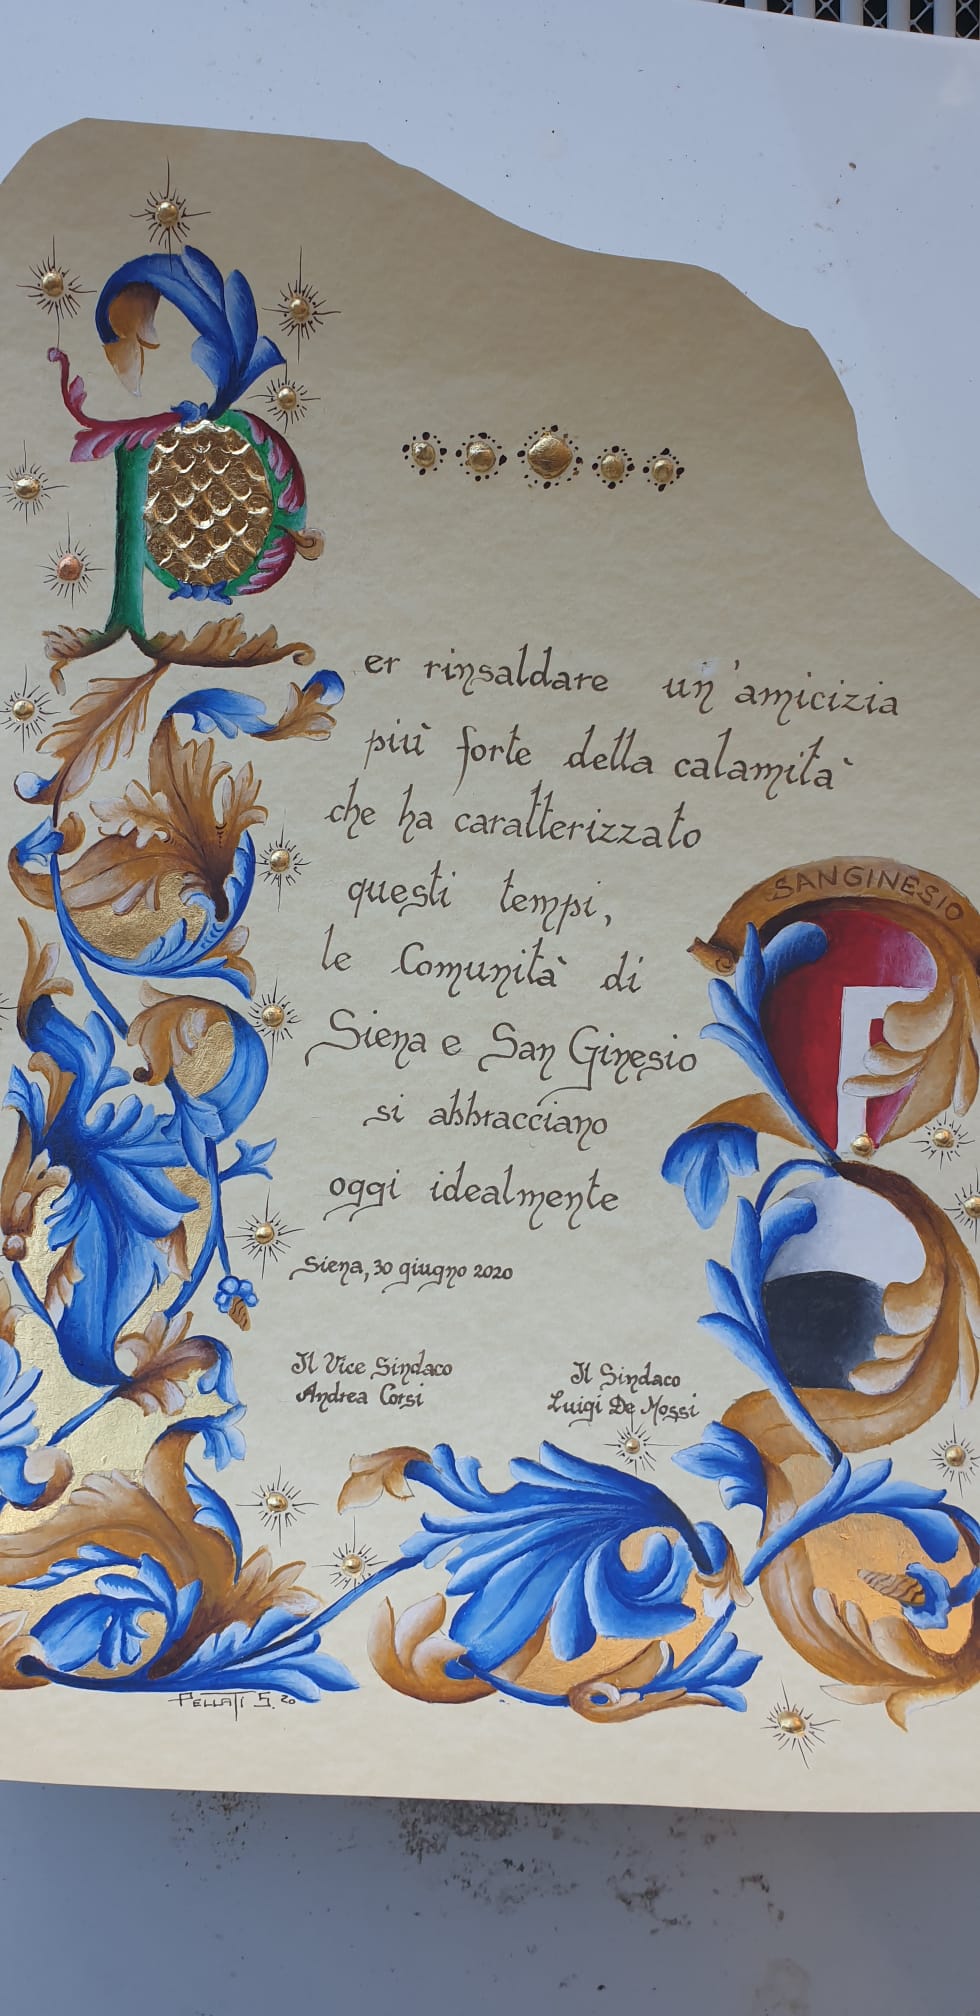 Per rinsaldare un'amicizia
più forte della calamità
che ha caratterizzato
questi tempi,
le Comunità di
Siena e San Ginesio
si abbracciano
oggi idealmente
Siena, 30 giugno 2020
Il Vice Sindaco
Andrea Corsi
Il Sindaco
Luigi De Mossi
SANGINESIO
PELLATI S. 20